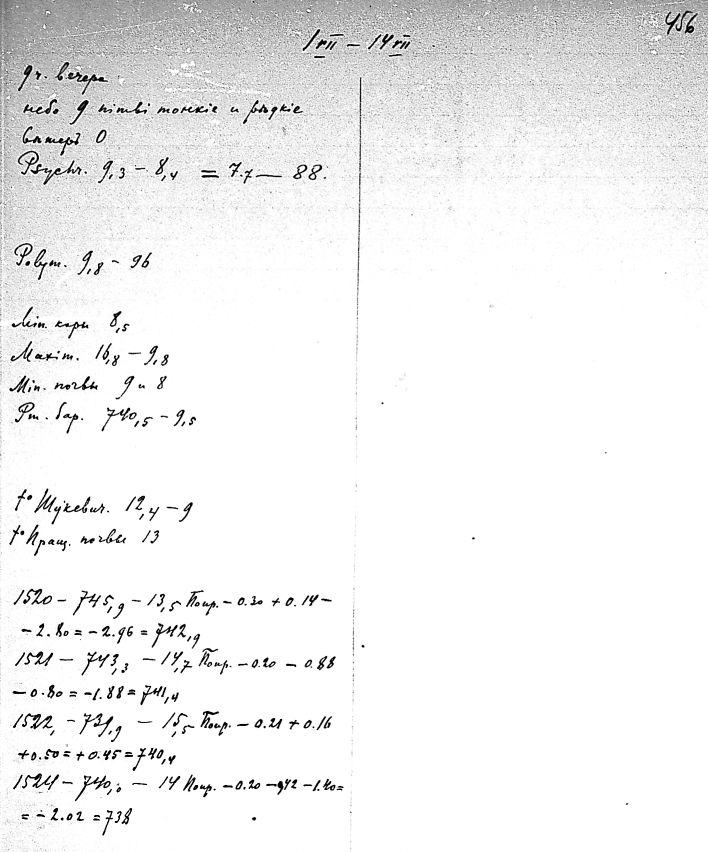 456
1 VII – 14 VII
9 ч. вечера
небо 9 нітви тонкіе и рѣдкіе
вѣтеръ 0
Psychr. 9,3 – 8,4 = 7.7 — 88.
Polym. 9,8 – 96
Min. коры 8,5
Maxim. 16,8 – 9,8
Min. почвы 9 и 8
Рт. бар. 740,5 – 9,5
t° Шукевич. 12,4 – 9
t° Пращ. почвы 13
1520 – 745,9 – 13,5 Попр. – 0.30 + 0.14 –
– 2.80 = – 2.96 = 742,9
1521 – 743,3 – 14,7 Попр. – 0.20 – 0.88
– 0.80 = – 1.88 = 741,4
1522, – 739,9 – 15,5 Попр. – 0.21 + 0.16
+ 0.50 = + 0.45 = 740,4
1524 – 740,0 – 14 Попр. – 0.20 – 0,42 – 1.40 =
= – 2.02 = 738